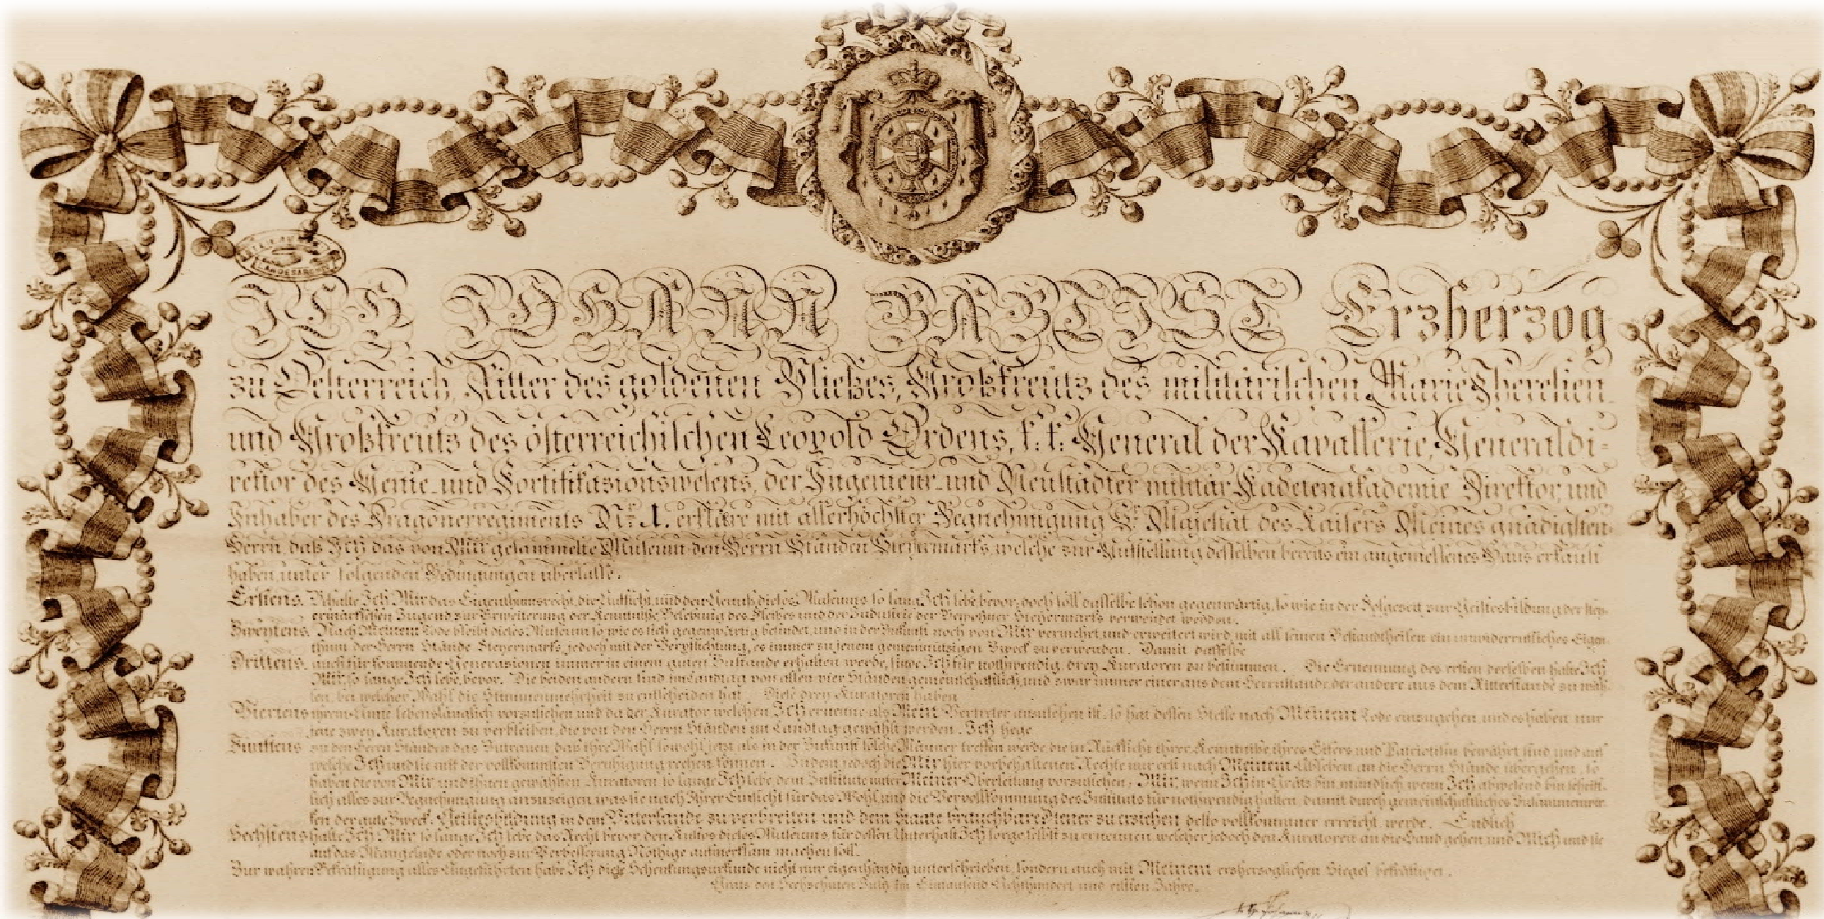 ICH JOHANN BAPTIST Erzherzog
zu Oesterreich, Ritter des goldenen Vließes, Großkreutz des militärischen Marie Theresien
und Großkreutz des österreichischen Leopold Ordens, k. k. General der Kavallerie, Generaldi-
rektor des Genie und Fortifikazionswesens, der Ingenieur und Neustädter militär Kadetenakademie Direktor, und
Inhaber des Dragonerregiments Nro. 1. erkläre mit allerhöchster Begnehmigung Sr. Majestät des Kaisers Meines gnädigsten
Herrn, daß Ich das von Mir gesammelte Museum den Herrn Ständen Steyermarks, welche zur Aufstellung desselben bereits ein angemessenes Haus erkauft
haben, unter folgenden Bedingungen überlasse.
Erstens. Behalte Ich Mir das Eigenthumsrecht, die Aufsicht, und den Genuß dieses Museums so lang Ich lebe bevor, doch soll dasselbe schon gegenwärtig, so wie in der Folgezeit zur Geistesbildung der stey-
ermärkischen Jugend zur Erweiterung der Kenntniße Belebung des Fleißes und der Industrie der Bewohner Steyermarks verwendet werden.
Zweytens. Nach Meinem Tode bleibt dieses Museum so wie es sich gegenwärtig befindet, und in der Zukunft noch von Mir vermehrt und erweitert wird, mit all seinen Bestandtheilen ein unwiderrufliches Eigen-
thum der Herrn Stände Steyermarks, jedoch mit der Verpflichtung, es immer zu jenem gemeinnützigen Zweck zu verwenden. Damit dasselbe
Drittens. auch für kommende Generazionen immer in einem guten Zustande erhalten werde, finde Ich für nothwendig, drey Kuratoren zu bestimmen. Die Ernennung des ersten derselben halte Ich
Mir, so lange Ich lebe, bevor. Die beiden andern sind im Landtag von allen vier Ständen gemeinschaftlich, und zwar immer einer aus dem Herrnstande, der andere aus dem Ritterstande zu wäh-
len, bei welcher Wahl die Stimmenmehrheit zu entscheiden hat. Diese drey Kuratoren haben
Viertens ihrem Amte lebenslänglich vorzustehen und da der Kurator welchen Ich ernenne als Mein Vertreter anzusehen ist, so hat dessen Stelle nach Meinem Tode einzugehen, und es haben nur
jene zwey Kuratoren zu verbleiben, die von den Herrn Ständen im Landtag gewählt werden. Ich hege
Fünftens zu den Herrn Ständen das Zutrauen, daß ihre Wahl sowohl jetzt als in der Zukunft solche Männer treffen werde die in Rücksicht ihrer Kenntniße ihres Eifers und Patriotism bewährt sind, und auf
welche Ich und sie mit der vollkommsten Beruhigung rechnen können. Indem jedoch die Mir hier vorbehaltenen Rechte nur erst nach Meinem Ableben an die Herrn Stände übergehen, so
haben die von Mir und ihnen gewählten Kuratoren so lange Ich lebe dem Institute unter Meiner Oberleitung vorzustehen, Mir, wenn Ich in Grätz bin mündlich wenn Ich abwesend bin schrift-
lich alles zur Begnehmigung anzuzeigen, was sie nach Ihrer Einsicht für das Wohl, und die Vervollkommung des Instituts für nothwendig halten, damit durch gemeinschaftliches Zusammenwir-
ken der gute Zweck, Geistesbildung in dem Vaterlande zu verbreiten und dem Staate brauchbare Diener zu erziehen desto vollkommner erreicht werde. Endlich
Sechstens halte Ich Mir so lange Ich lebe das Recht bevor, den Kustos dieses Museums für dessen Unterhalt Ich sorge selbst zu ernennen, welcher jedoch den Kuratoren an die Hand gehen und Mich und sie
auf das Mangelnde oder noch zur Verbesserung Nöthige aufmerksam machen soll.
Zur wahren Bekräftigung alles Angeführten habe Ich diese Schenkungsurkunde nicht nur eigenhändig unterschrieben, sondern auch mit Meinem erzherzoglichen Siegel bekräftiget.
den Sechzehnten July im Eintausend Achthundert und eilften Jahre.